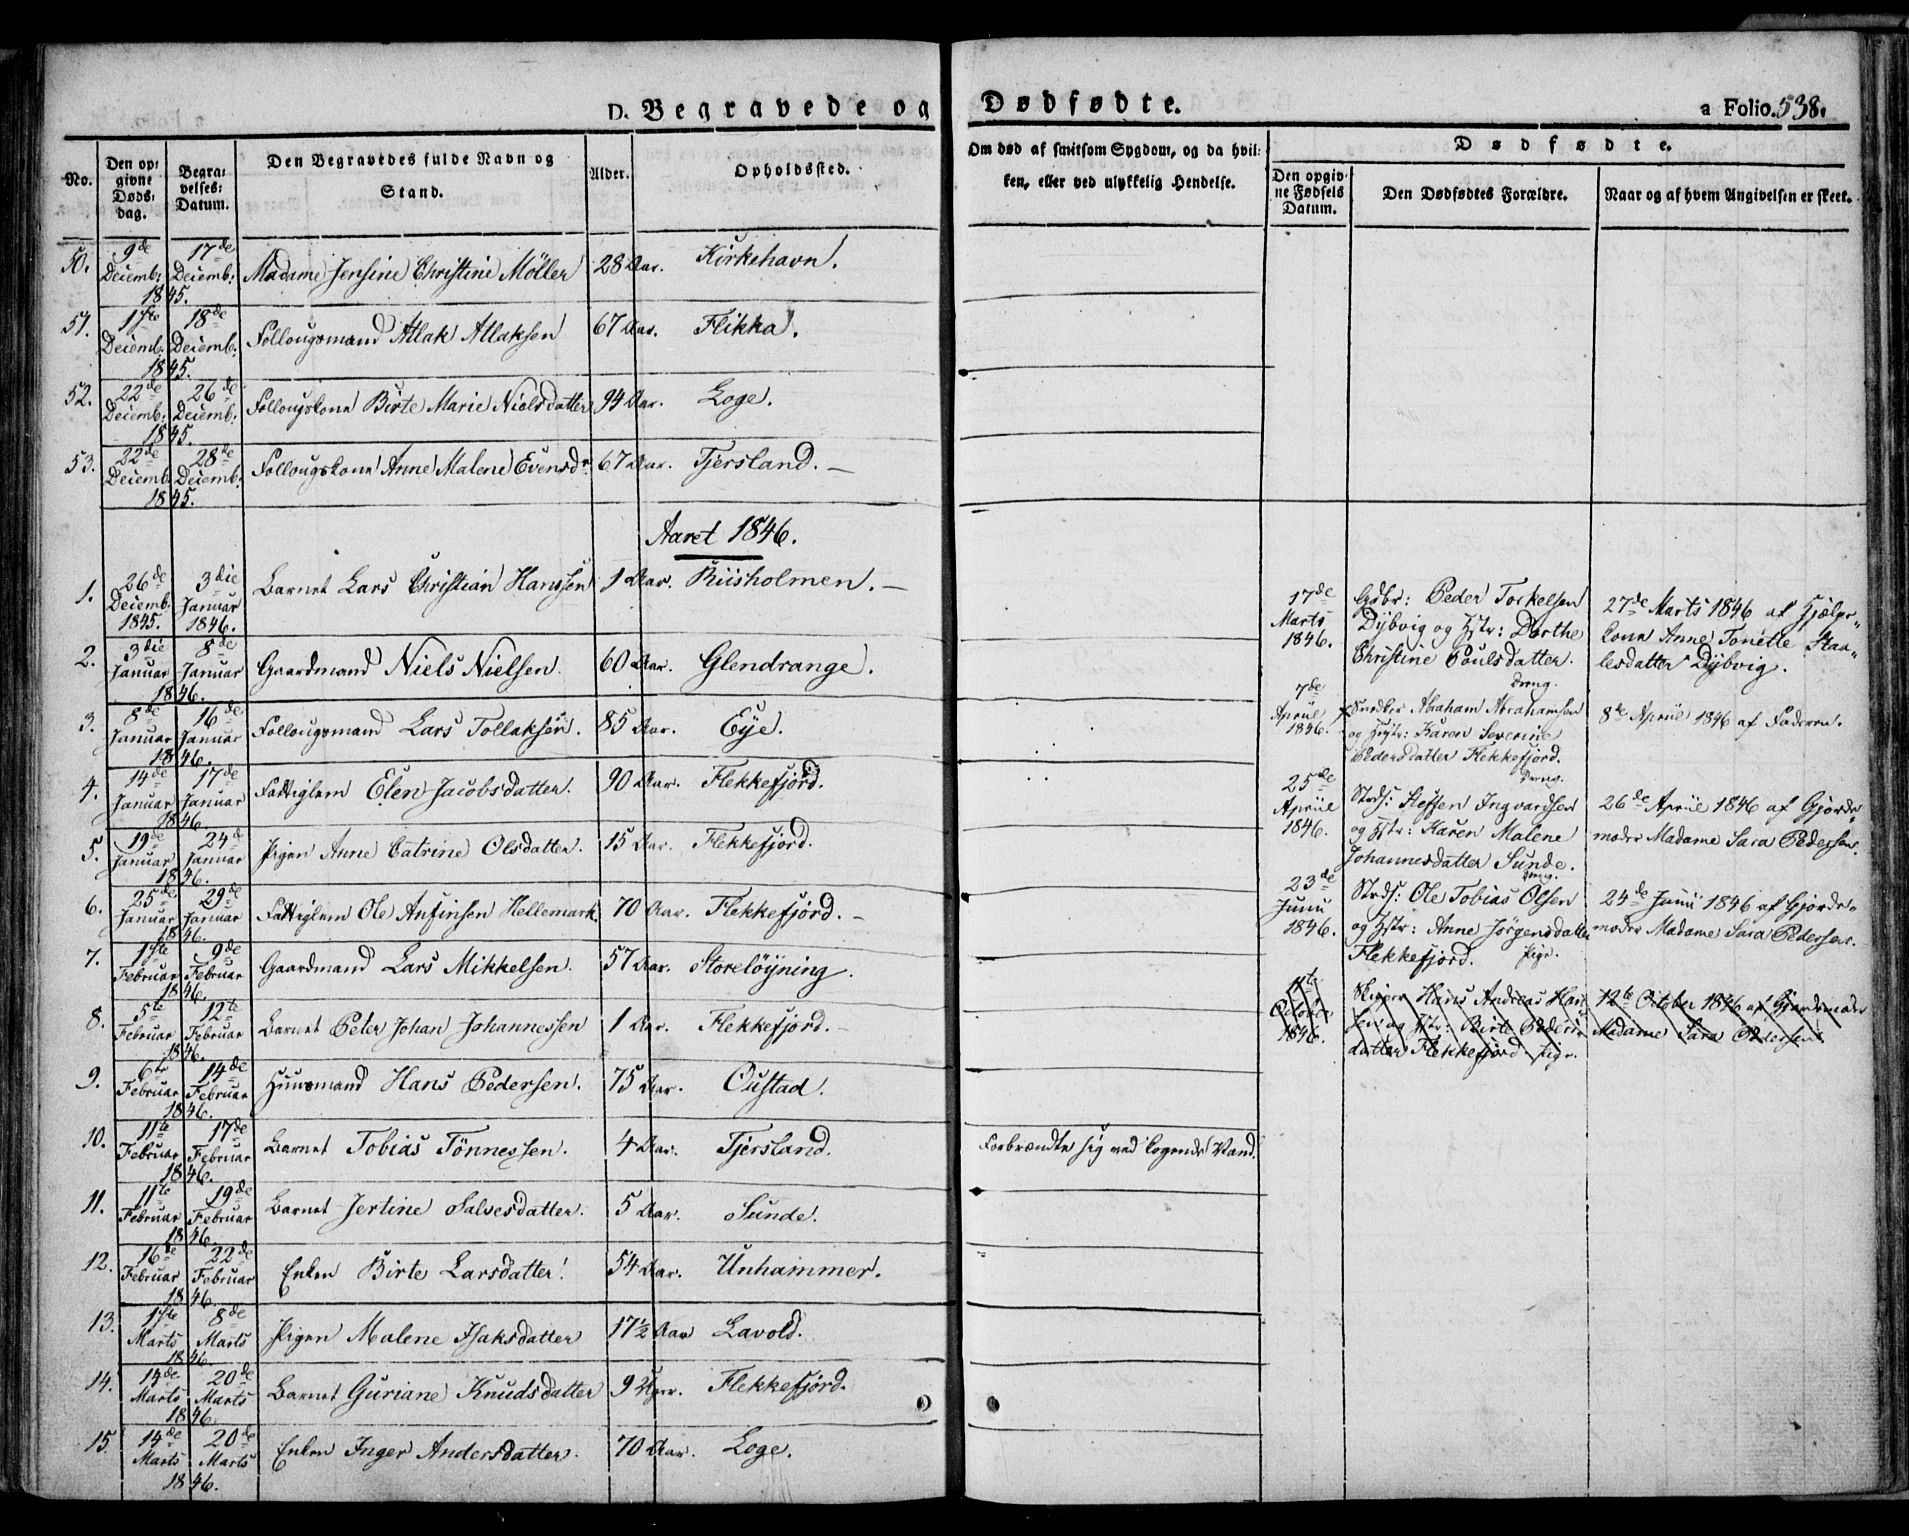 D. Begravede og Dødfødte. a Folio. 538.
No. | Den opgivne Dødsdag. | Begravelses-Datum. | Den Begravedes fulde Navn og Stand. | Alder. | Opholdssted. | Om død af smitsom Sygdom, og da hvilken, eller ved ulykkelig Hendelse.
50. | 9de Decemb: 1845. | 17de Decemb: | Madame Jensine Christine Möller | 28 Aar. | Kirkehavn.
51. | 1ste Decemb. 1845. | 18de Decemb: | Follougsmand Atlak Atlaksen | 67 Aar. | Flikka.
52. | 22de Decemb: 1845 | 26de Decemb: | Follougskone Birte Marie Nielsdatter | 94 Aar. | Loge.
53. | 22de Decemb 1845. | 28de Decemb: | Follougskone Anne Malene Evensdr | 67 Aar. | Tjersland.
Aaret 1846.
1. | 26de Decemb. 1845. | 3die Januar 1846. | Barnet Lars Christian Hanssen | 1 Aar. | Riisholmen.
2. | 3die Januar 1846. | 8de Januar | Gaardmand Niels Nielsen | 60 Aar. | Glendrange.
3. | 8de Januar 1846. | 16de Januar | Follougsmand Lars Tollaksen. | 85 Aar. | Eye.
4. | 14de Januar 1846. | 17de Januar | Fattiglem Elen Jacobsdatter. | 90 Aar. | Flekkefjord.
5. | 19de Januar 1846. | 24de Januar | Pigen Anne Catrine Olsdatter. | 15 Aar. | Flekkefjord.
6. | 25de Januar 1846. | 29de Januar | Fattiglem Ole Anfinsen Hellemark | 70 Aar. | Flekkefjord.
7. | 1ste Februar 1846. | 9de Februar | Gaardmand Lars Mikkelsen. | 57 Aar. | Storelöyning.
8. | 5te Februar 1846. | 12te Februar | Barnet Peter Johan Johannessen | 1 Aar. | Flekkefjord.
9. | 6te Februar 1846. | 14de Februar | Huusmand Hans Pedersen. | 75 Aar. | Oustad.
10. | 11te Februar 1846. | 17de Februar | Barnet Tobias Tönnessen. | 4 Aar. | Tjersland. | Forbrændte sig ved kogende Vand.
11. | 11te Februar 1846. | 19de Februar | Barnet Jertine Salvesdatter. | 5 Aar. | Sunde.
12. | 16de Februar 1846. | 22de Februar | Enken Birte Larsdatter. | 54 Aar. | Unhammer.
13. | 1ste Marts 1846. | 8de Marts | Pigen Malene Isaksdatter | 17½ Aar | Lavold.
14. | 14de Marts 1846 | 20de Marts | Barnet Guriane Knudsdatter | 9 | Flekkefjord.
15. | 14de Marts 1846. | 20de Marts | Enken Inger Andersdatter. | 70 Aar. | Loge.
Dødfødte.
Den opgivne Fødsels Datum. | Den Dødfødtes Forældre. | Naar og af hvem Angivelsen er skeet.
17de Marts 1846. | Gdbr: Peder Torkelsen
Dÿbvig og Hstr: Dorthe
Christine Poulsdatter.
Dreng. | 27de Marts 1846 af Hjælpe-
kone Anne Tonette Staa-
lesdatter Dÿbvig.
7de Apriil 1846. | Snedker Abraham Abrahamsen
og Hustr: Karen Severine
Pedersdatter Flekkefjord.
Dreng. | 8de Apriil 1846 af Faderen.
25de Apriil 1846. | Strds: Steffen Ingvardsen
og Hstr: Karen Malene
Johannesdatter Sunde.
Dreng. | 26de Apriil 1846 af Gjorde-
moder Madame Sara Pedersen.
23de Junii 1846. | Strds: Ole Tobias Olsen
og Hstr: Anne Jörgensdatter
Flekkefjord. Pige. | 24de Junii 1846 af Gjorde-
moder Madame Sara Pedersen.
11te October 1846. | Skipper Hans Andreas Han-
sen og Hstr: Birte Peders-
datter Flekkefjord. Pige. | 12te October 1846 af Gjordemoder
Madame Sara Pedersen